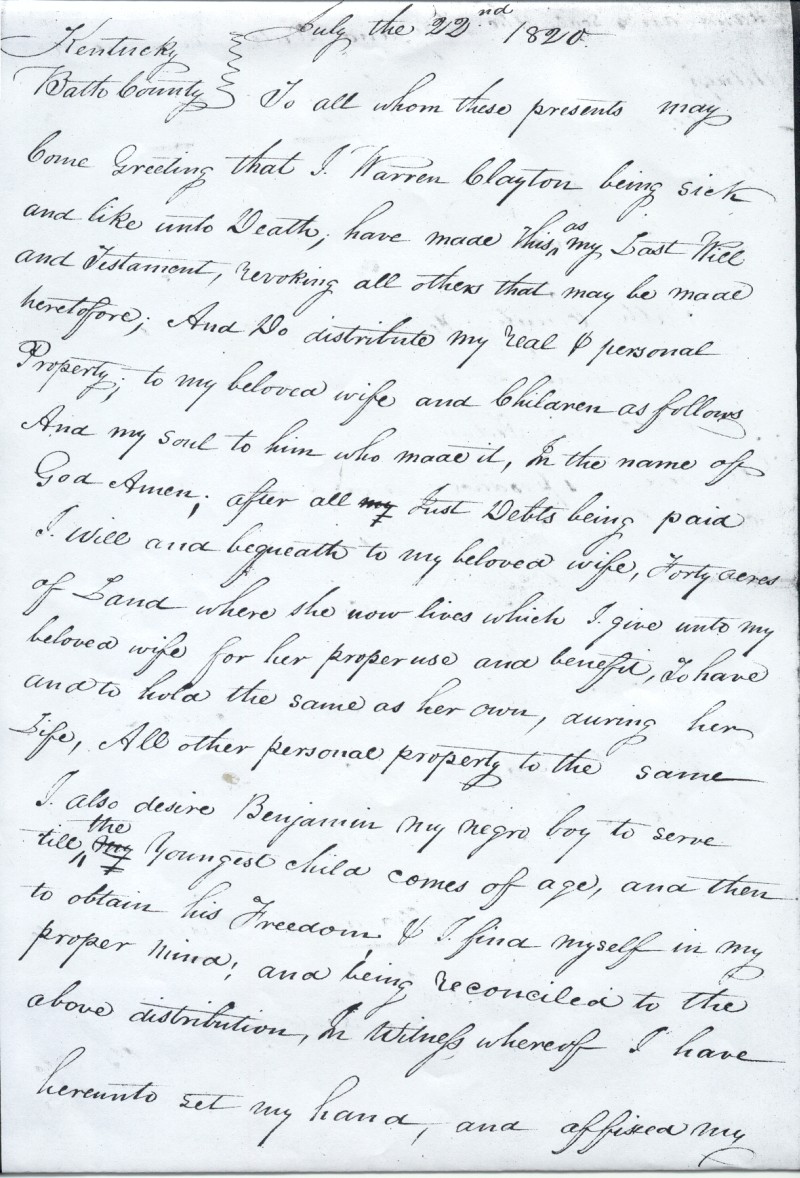 July the 22nd 1820.
Kentucky
Bath County } To all whom these presents may
Come Greeting that I. Warren Clayton being sick
and like unto Death; have made this, as my Last Will
and Testament, revoking all others that may be made
heretofore; And Do distribute my real & personal
Property; to my beloved wife and Children as follows
And my soul to him who made it, In the name of
God Amen; after all my Just Debts being paid
I. will and bequeath to my beloved wife, Forty acres
of Land where she now lives which I. give unto my
beloved wife for her proper use and benefit, To have
and to hold the same as her own, during her
Life, All other personal property to the same
I. also desire Benjamin my negro boy to serve
till the my Youngest child comes of age, and then
to obtain his Freedom, & I. find myself in my
proper mind; and being reconciled to the
above distribution, In Witness whereof I have
hereunto set my hand, and affixed my